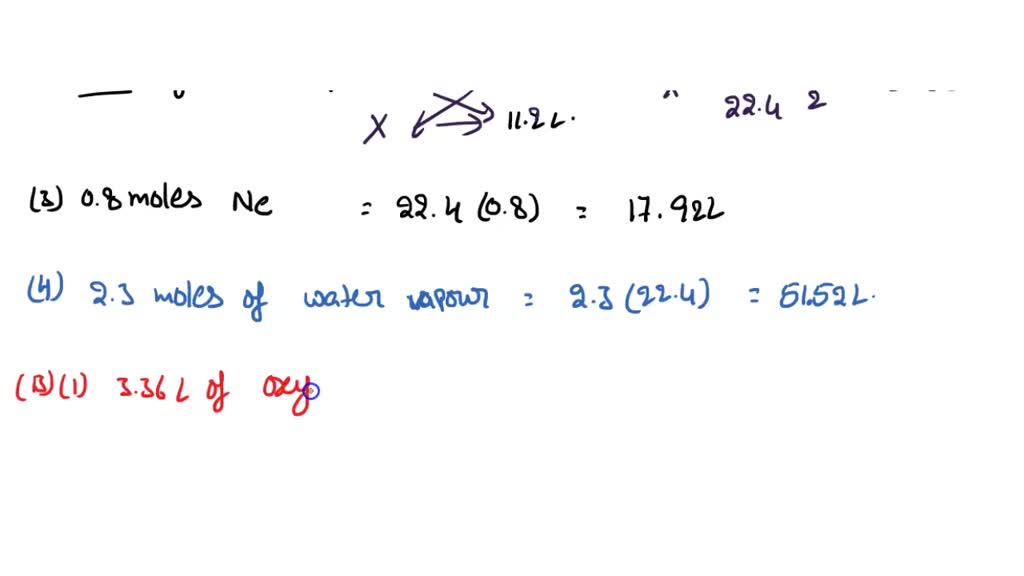 22.4 2
X 11.2L.
(3) 0.8 moles Ne = 22.4 (0.8) = 17.92L
(4) 2.3 moles of water vapour = 2.3 (22.4) = 51.52L.
(B)(1) 3.36 L of oxy